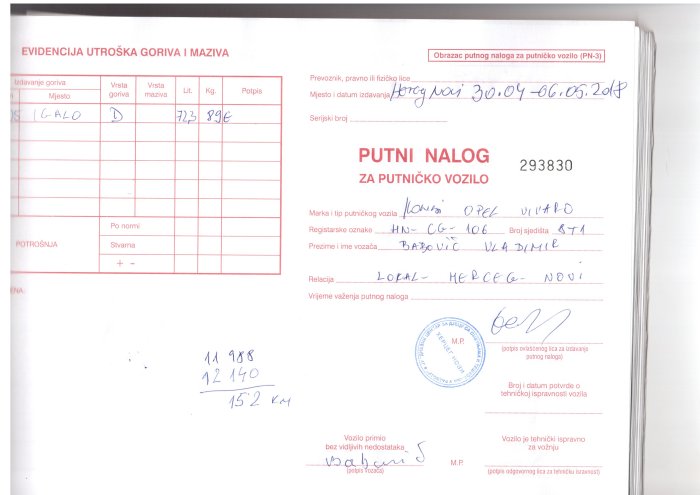 EVIDENCIJA UTROŠKA GORIVA I MAZIVA
Izdavanje goriva
Mjesto
Vrsta goriva
Vrsta maziva
Lit.
Kg.
Potpis
IGALO D 89€
POTROŠNJA
Po normi
Stvarna
+ -
11 988
12 140
152 KM
Obrazac putnog naloga za putničko vozilo (PN-3)
Prevoznik, pravno ili fizičko lice
Mjesto i datum izdavanja Herceg Novi 30.04-06.05.2018
Serijski broj
PUTNI NALOG 293830
ZA PUTNIČKO VOZILO
Marka i tip putničkog vozila Kombi OPEL VIVARO
Registarske oznake HN-CG-106 Broj sjedišta 8+1
Prezime i ime vozača BABOVIĆ VLADIMIR
Relacija LOKAL- HERCEG- NOVI
Vrijeme važenja putnog naloga
M.P.
(potpis ovlašćenog lica za izdavanje
putnog naloga)
Broj i datum potvrde o
tehničkoj ispravnosti vozila
Vozilo primio
bez vidljivih nedostataka
(potpis vozača)
M.P.
Vozilo je tehnički ispravno
za vožnju
(potpis odgovornog lica za tehničku ispravnost)